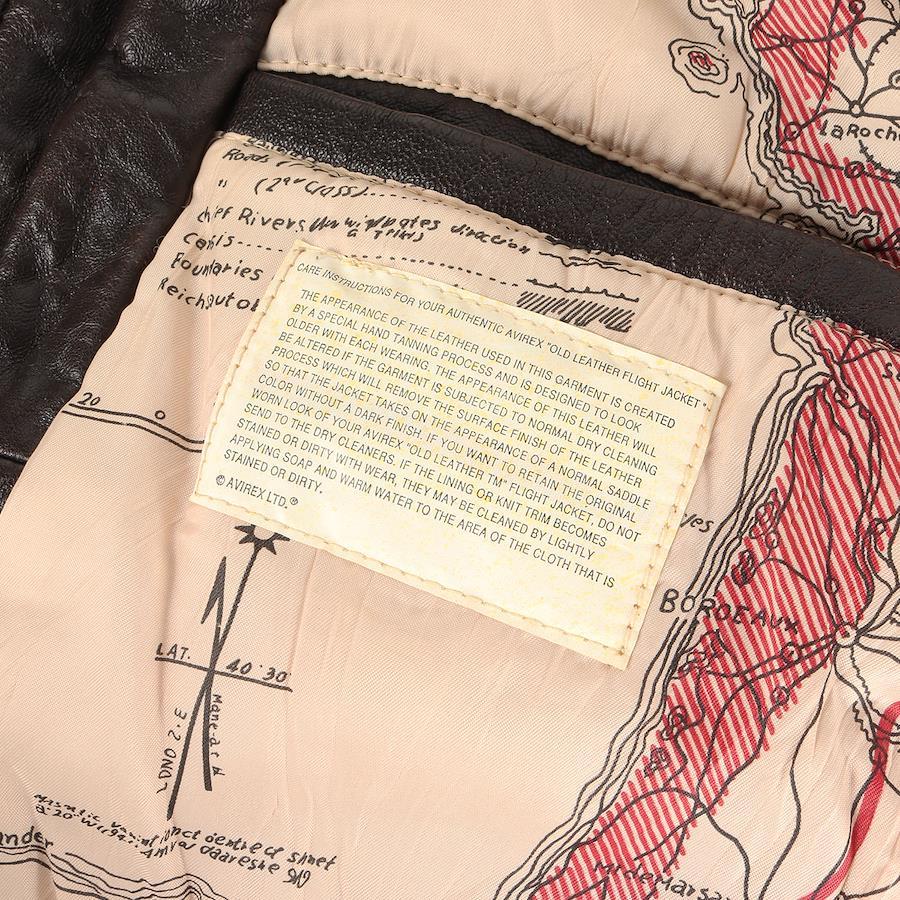 LaRoche
Roads
" (2nd CLASS)
chief Rivers
direction
Canals
Boundaries
CARE INSTRUCTIONS FOR YOUR AUTHENTIC AVIREX "OLD LEATHER FLIGHT JACKET":
THE APPEARANCE OF THE LEATHER USED IN THIS GARMENT IS CREATED
BY A SPECIAL HAND TANNING PROCESS AND IS DESIGNED TO LOOK
OLDER WITH EACH WEARING. THE APPEARANCE OF THIS LEATHER WILL
BE ALTERED IF THE GARMENT IS SUBJECTED TO NORMAL DRY CLEANING
PROCESS WHICH WILL REMOVE THE SURFACE FINISH OF THE LEATHER
SO THAT THE JACKET TAKES ON THE APPEARANCE OF A NORMAL SADDLE
COLOR WITHOUT A DARK FINISH. IF YOU WANT TO RETAIN THE ORIGINAL
WORN LOOK OF YOUR AVIREX "OLD LEATHER TM" FLIGHT JACKET, DO NOT
SEND TO THE DRY CLEANERS. IF THE LINING OR KNIT TRIM BECOMES
STAINED OR DIRTY WITH WEAR, THEY MAY BE CLEANED BY LIGHTLY
APPLYING SOAP AND WARM WATER TO THE AREA OF THE CLOTH THAT IS
STAINED OR DIRTY.
© AVIREX LTD.®
20
BORDEAUX
LAT. 40°30'